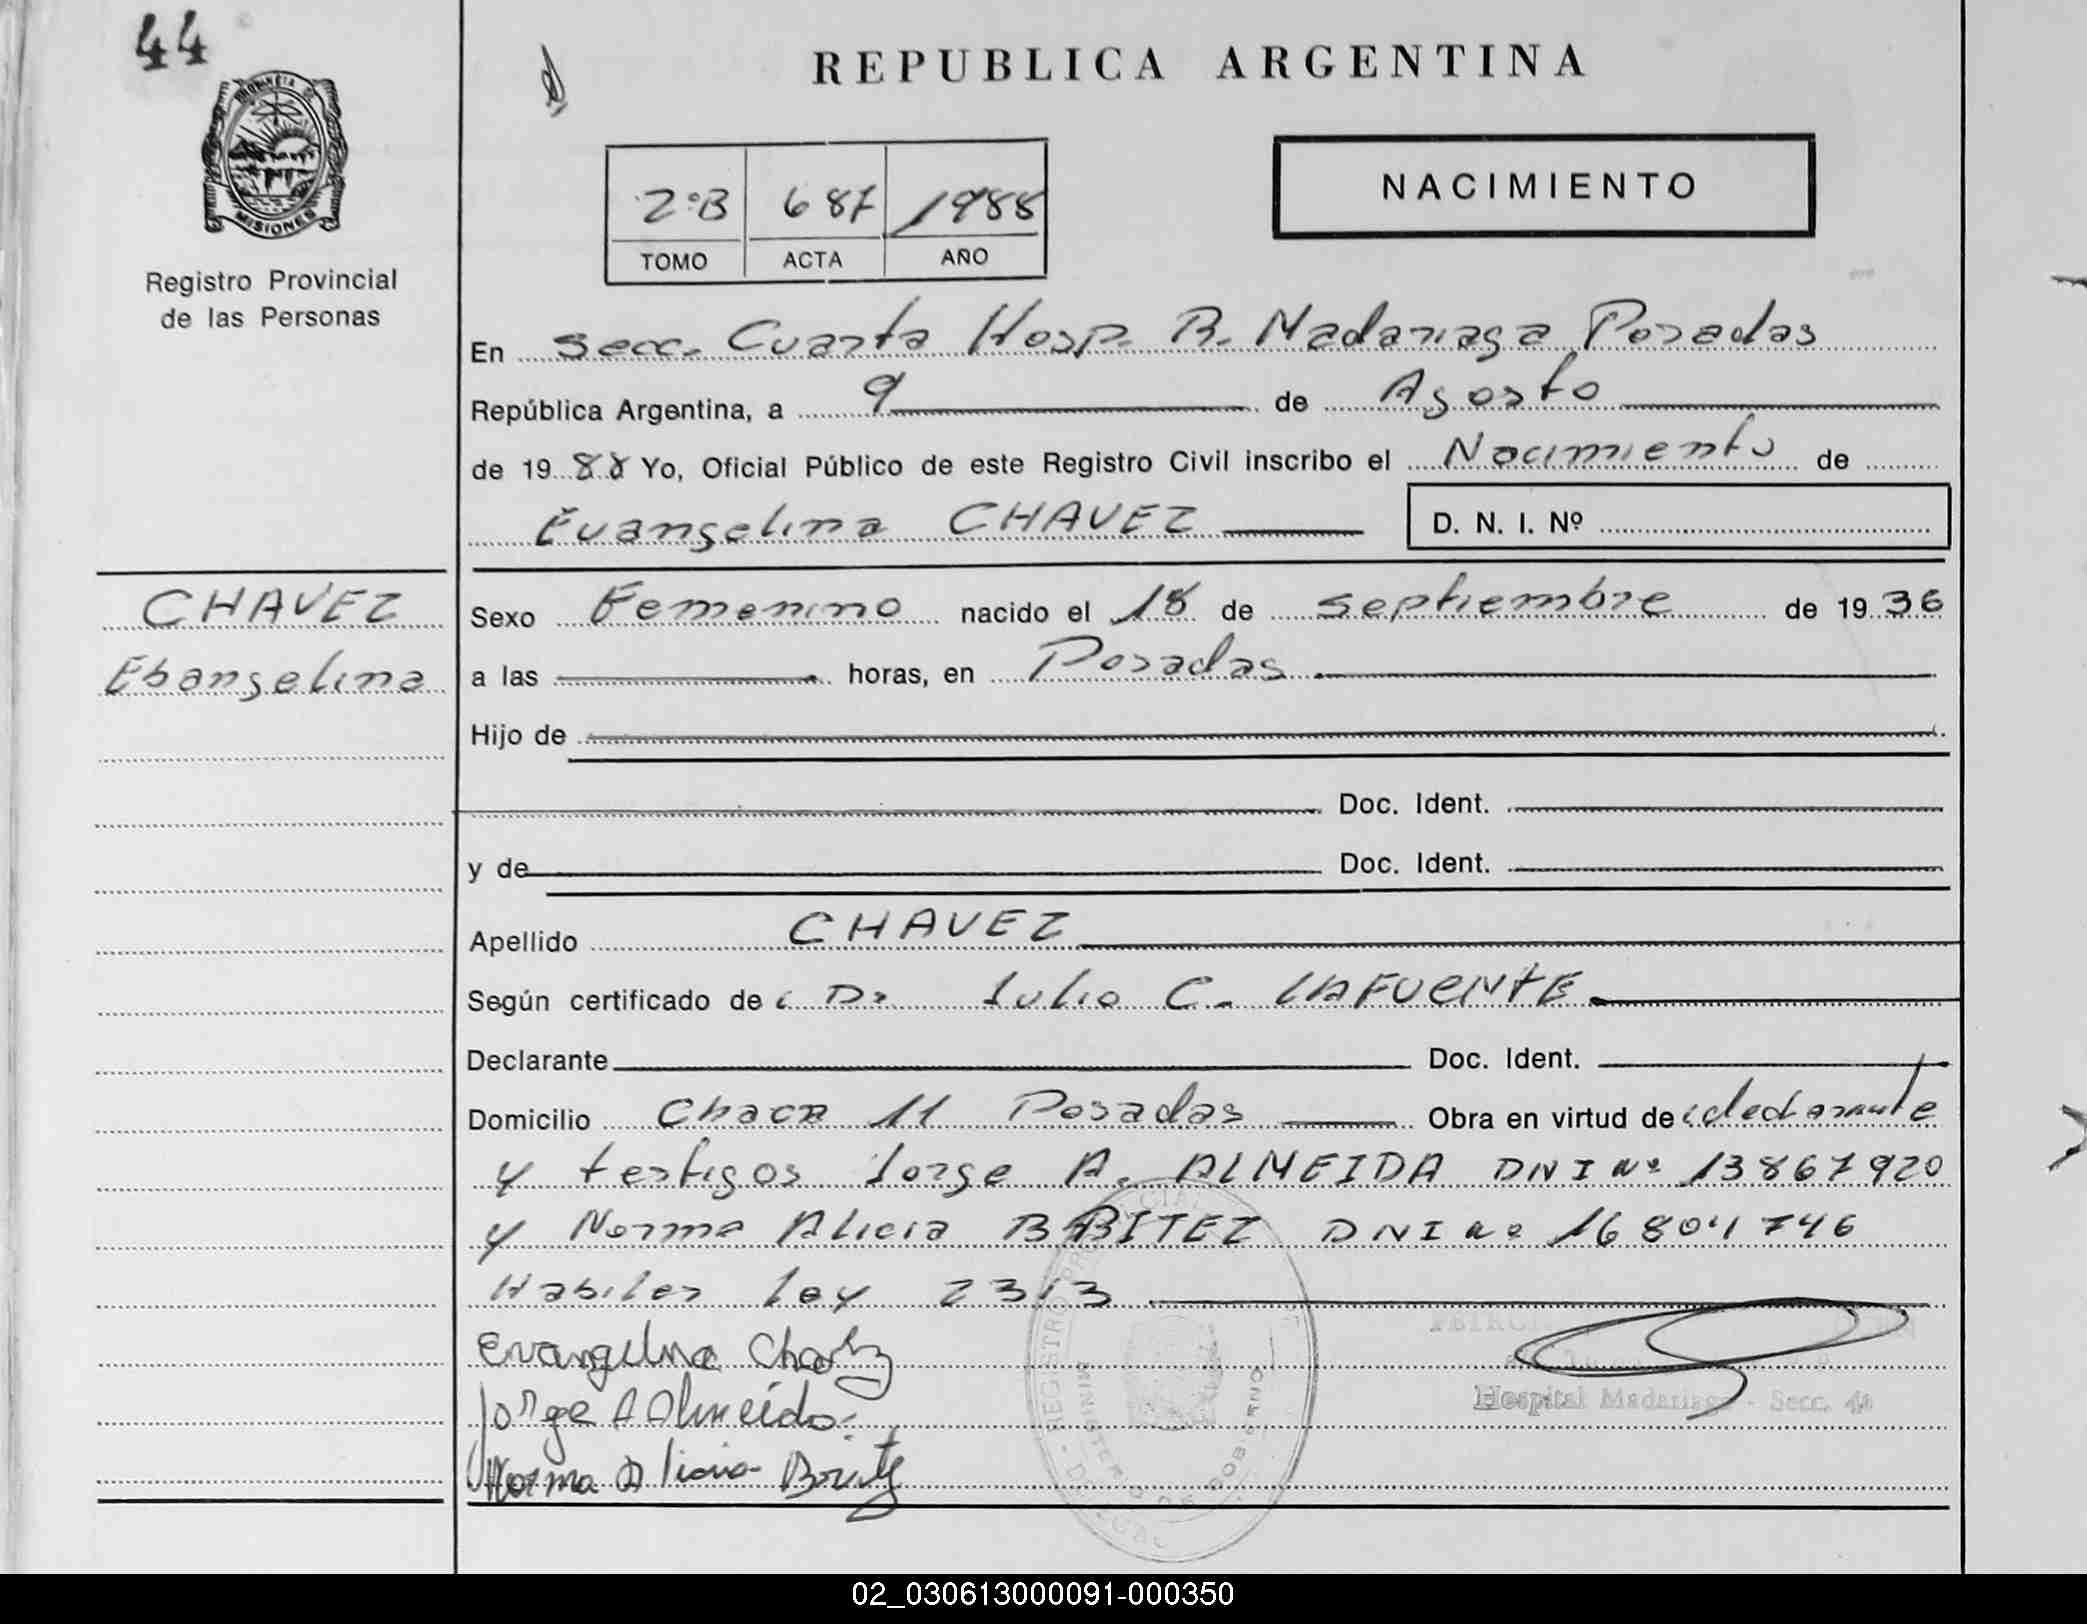 44
REPUBLICA ARGENTINA
PROVINCIA DE
MISIONES
Registro Provincial
de las Personas
2ºB 687 1988
TOMO ACTA AÑO
NACIMIENTO
En Secc. Cuarta Hosp. R. Madariaga Posadas
República Argentina, a 9 de Agosto
de 1988 Yo, Oficial Público de este Registro Civil inscribo el Nacimiento de
Evangelina CHAVEZ D. N. I. Nº
CHAVEZ
Ebangelina
Sexo Femenino nacido el 18 de septiembre de 1936
a las horas, en Posadas
Hijo de
Doc. Ident.
y de Doc. Ident.
Apellido CHAVEZ
Según certificado de Dr Julio C. LAFUENTE
Declarante Doc. Ident.
Domicilio Chacr 11 Posadas Obra en virtud de declarante
y testigos Jorge A. ALMEIDA DNI Nº 13867920
y Norma Alicia BRITEZ DNI Nº 16804746
Habiles ley 2313
Evangelina Chavez
Jorge A Almeida
Norma Alicia Britez
Hospital Madariaga - Secc. 4a
02_030613000091-000350